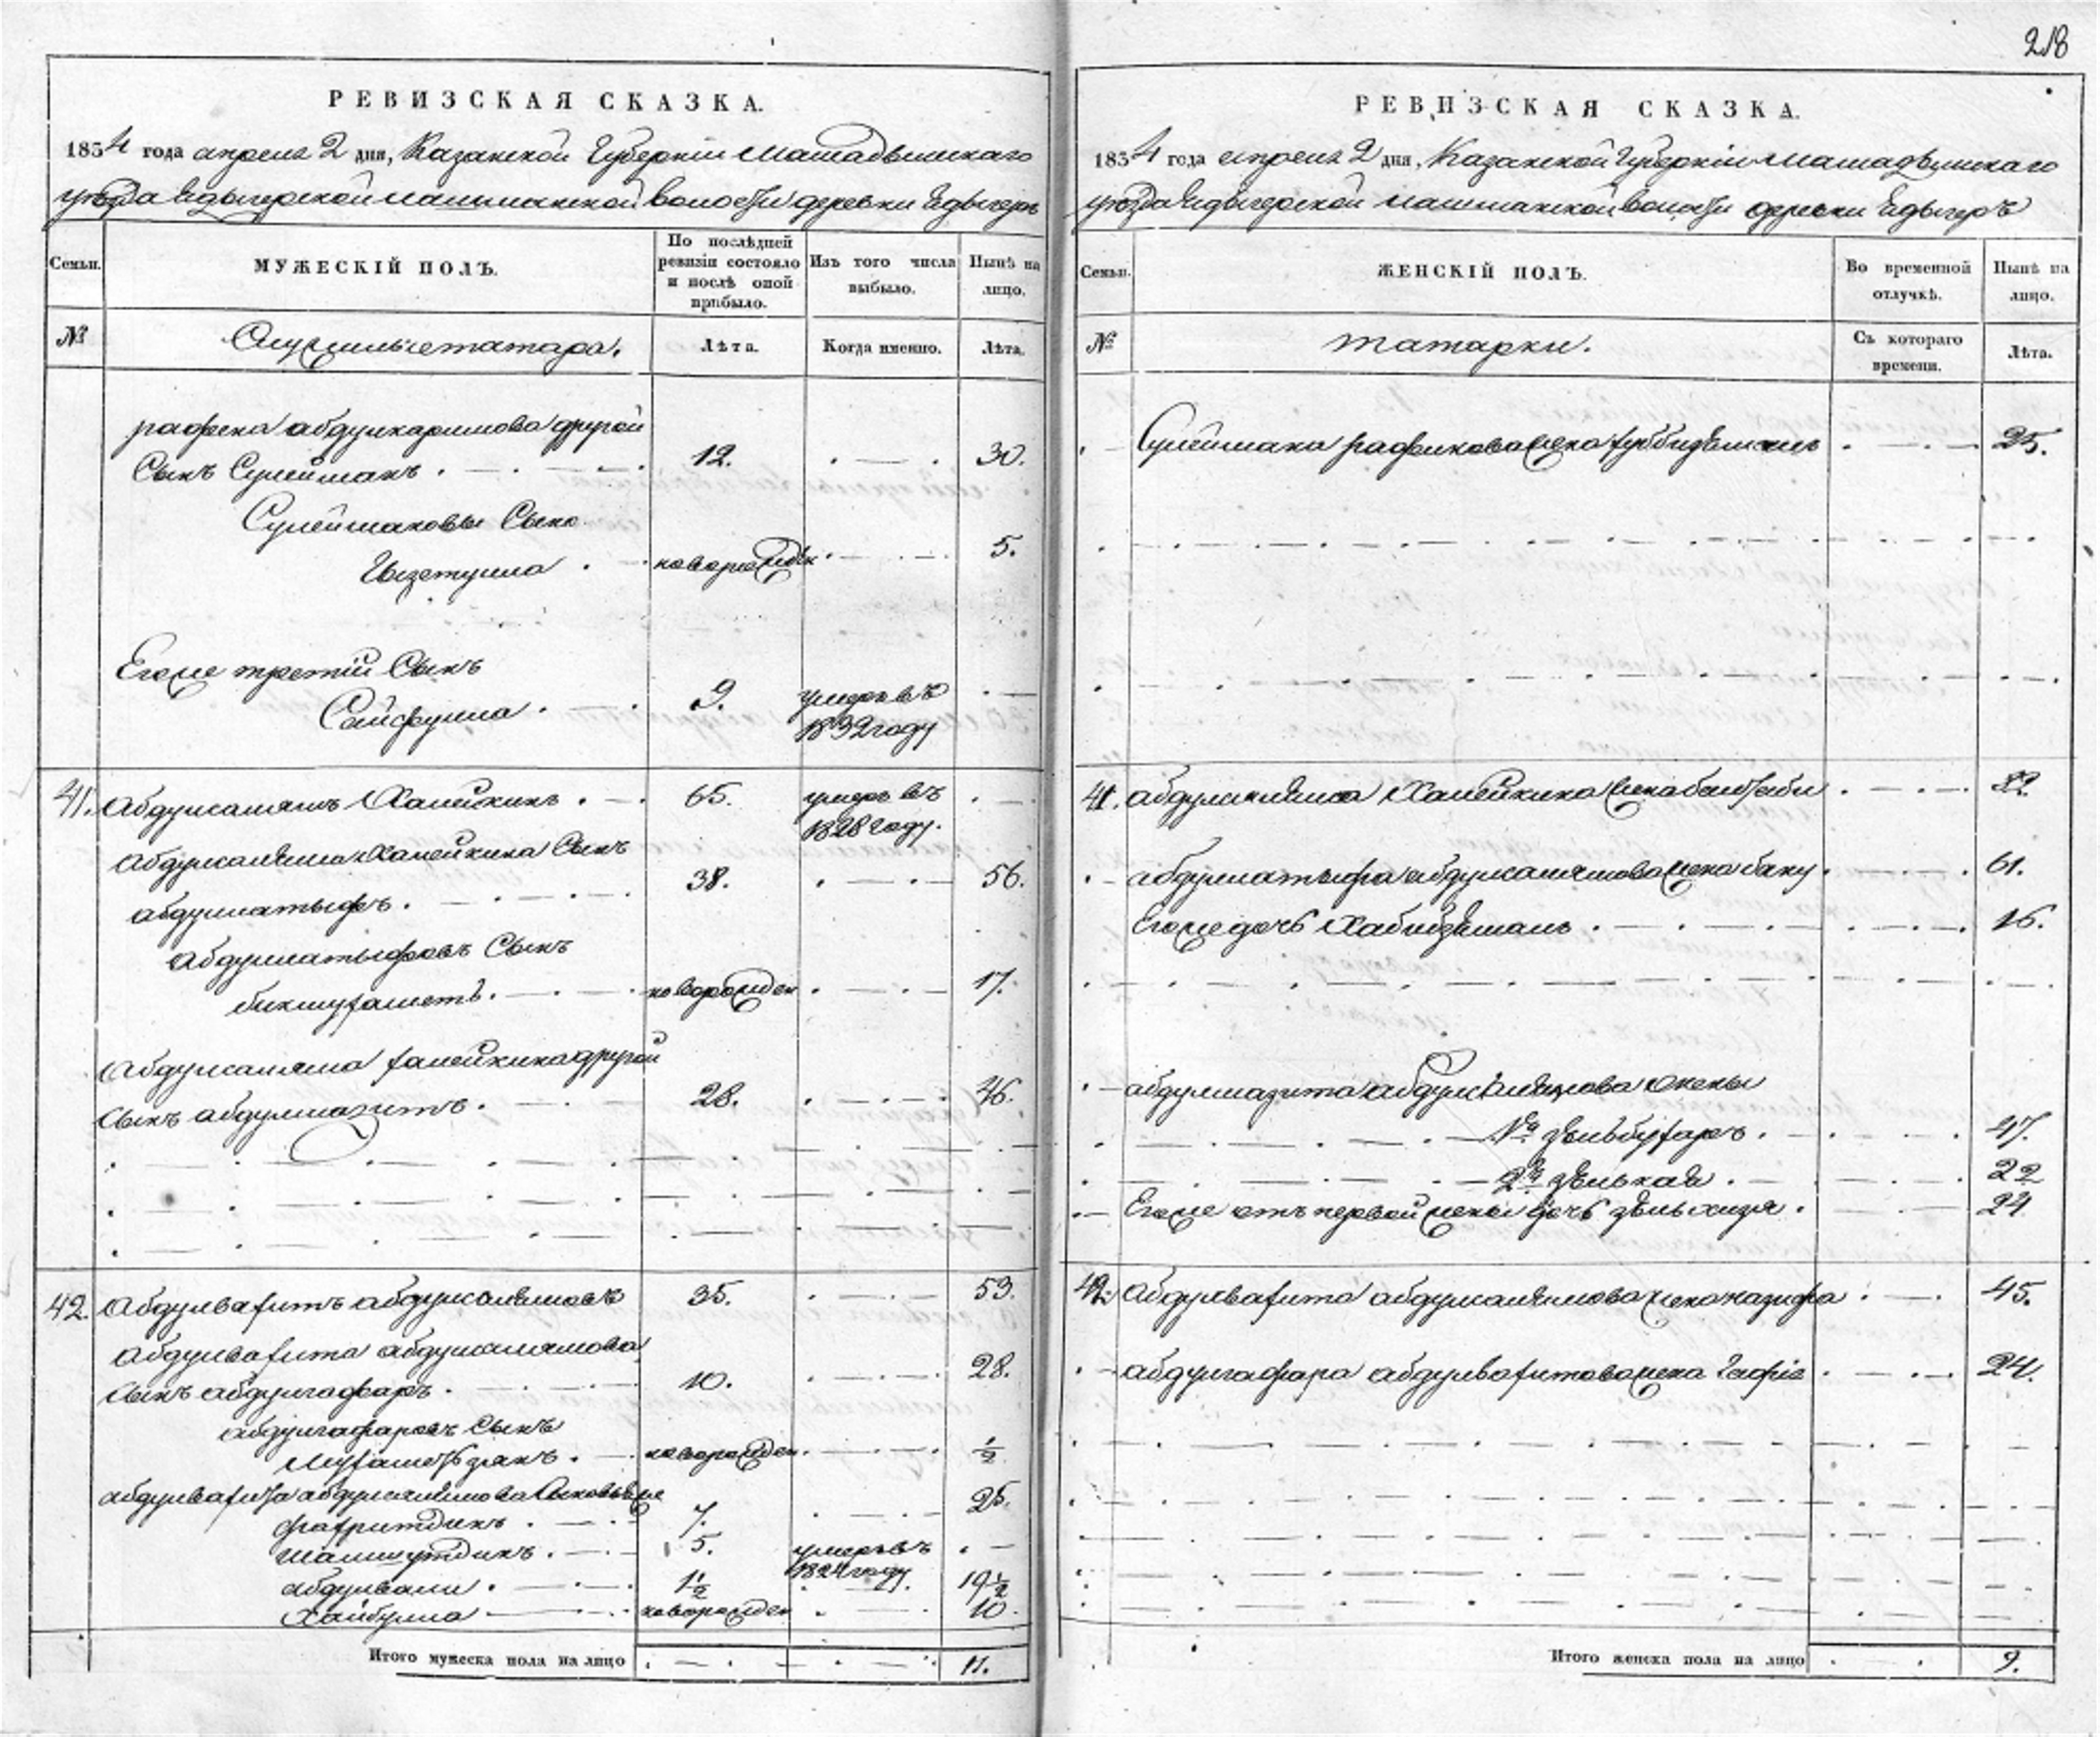 218
РЕВИЗСКАЯ СКАЗКА.
1834 года апреля 2 дня, Казанской Губернiи Мамадышскаго
уезда Ядыгерской волости деревни Ядыгеръ
Семьи.
МУЖЕСКIЙ ПОЛЪ.
По послѣдней ревизiи состояло и послѣ оной прибыло.
Изъ того числа выбыло.
Нынѣ на лицо.
№
Служилые татара.
Лѣта.
Когда именно.
Лѣта.
рафека абдулкаримова другой
Сынъ Сулейманъ. 12. 30.
Сулеймановъ Сынъ
новорожден 5.
Егоже третiй Сынъ
Сейфулла. 9. умеръ въ 1832 году
41. Абдулсалямъ Ханейкинъ. 65. умеръ въ 1828 году.
абдулсаляма Ханейкина Сынъ
абдуллатыфъ. 38. 56.
абдуллатыфовъ Сынъ
бикмухаметъ. новорожден 17.
Абдулсаляма ханейкина другой
Сынъ абдулмазитъ. 28. 46.
42. Абдулвахитъ абдулсалямовъ 35. 53.
абдулвахита абдулсалямова
Сынъ абдулгафаръ. 10. 28.
абдулгафаровъ Сынъ
новорожден. 1/2
абдулвахита абдулсалямова Сыновья
фахритдинъ. 7. 25.
шамсутдинъ. 5. умеръ въ 1824 году
абдулвали. 1 1/2 19 1/2
Хайбулла новорожден 10.
Итого мужеска пола на лицо 11.
РЕВИЗСКАЯ СКАЗКА.
1834 года апреля 2 дня, Казанской Губернiи Мамадышскаго
уезда Ядыгерской волости деревни Ядыгеръ
Семьи.
ЖЕНСКIЙ ПОЛЪ.
Во временной отлучкѣ.
Нынѣ на лицо.
№
татарки.
Съ котораго времени.
Лѣта.
Сулеймана рафикова жена 25.
41. абдулсаляма Ханейкина жена
абдуллатыфа абдулсалямова жена бану 61.
Егоже дочь Хабибзямалъ. 16.
абдулмазита абдулсалямова жены
1я 47.
2я 22
Егоже отъ первой жены дочь 24
42. абдулвахита абдулсалямова жена назифа. 45.
абдулгафара абдулвахитова жена 24.
Итого женска пола на лицо 9.